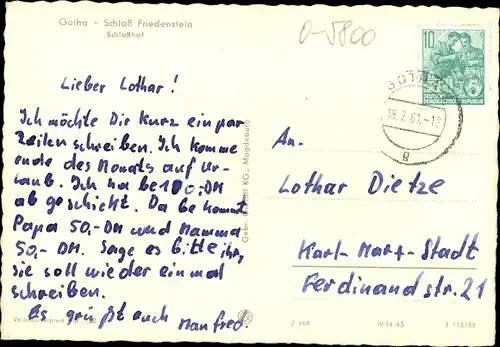 Gotha - Schloß Friedenstein
Schloßhof
0-5800
10
DEUTSCHE
DEMOKRATISCHE REPUBLIK
GOTHA
18.7.61.-12
g
Lieber Lothar!
Ich möchte Dir Kurz ein par
Zeilen schreiben. Ich komme
ende des Monats auf Ur-
laub. Ich ha be 100,-DM
ab geschickt. Da be kommt
Papa 50,-DM und Mamma
50,-DM. Sage es bitte ihr,
sie soll wieder einmal
schreiben.
Es grüßt auch Manfred.
Gebr. KG., Magdeburg
An.
Lothar Dietze
Karl-Marx-Stadt
Ferdinand str. 21
Z 168
IV-14-45